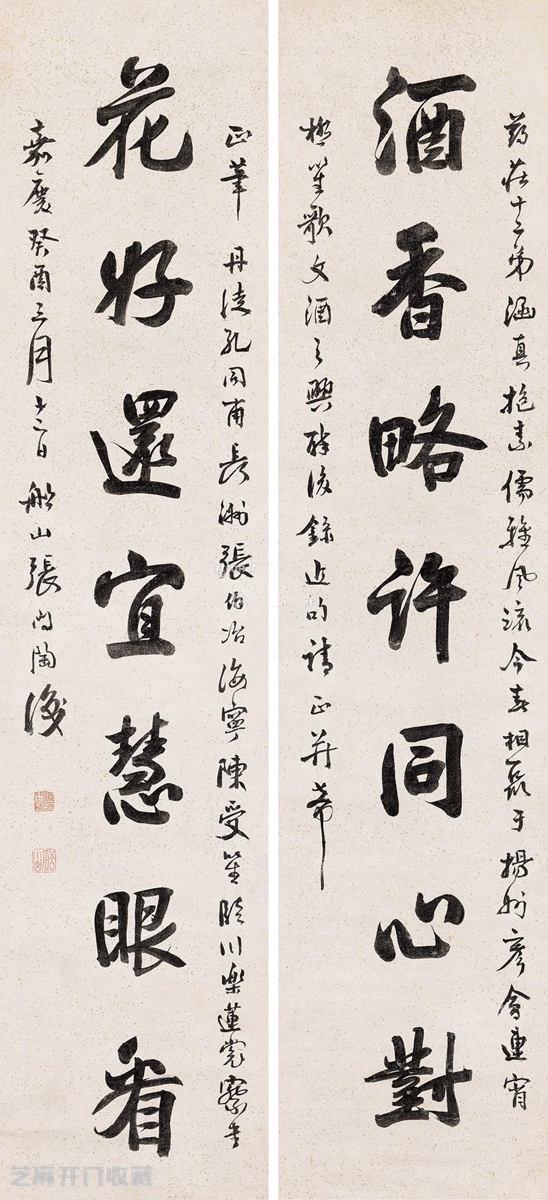 莊十二弟涵真抱素儒雅風流今春相聚于揚州彥會連宵
酒香略許同心對
極笙歌文酒之興醉後錄近句請正并希
正 丹徒孔同甫長洲張伯冶海寧陳受笙臨川樂蓮裳
花好還宜慧眼看
嘉慶癸酉三月十二日船山張問陶識
芝麻开门收藏